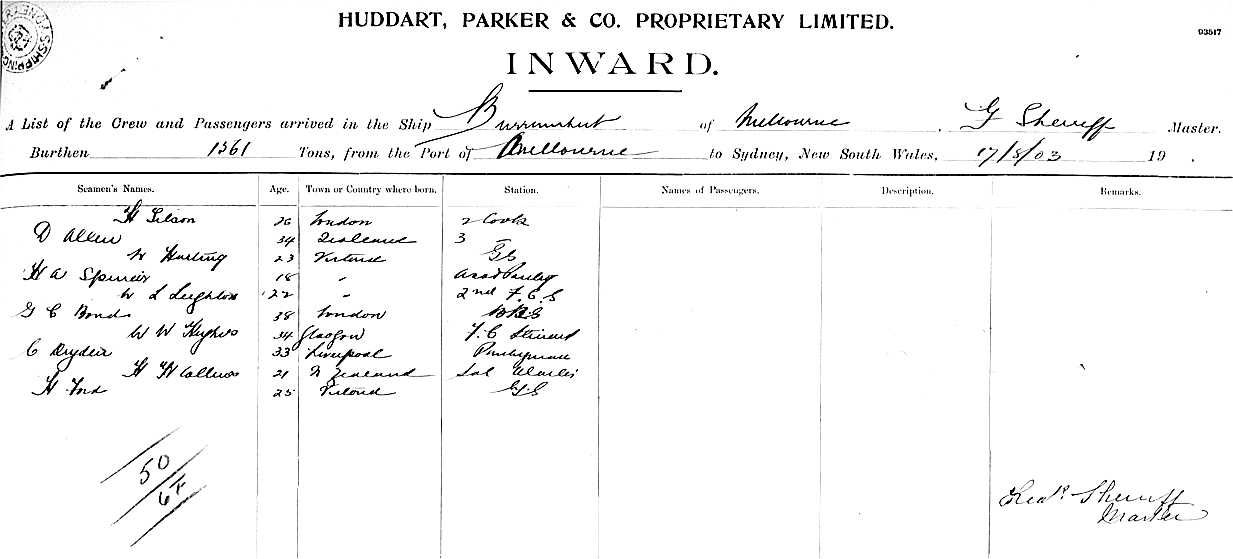 HUDDART, PARKER & CO. PROPRIETARY LIMITED.
93517
INWARD.
A List of the Crew and Passengers arrived in the Ship Burrumbeet of Melbourne, G Sherriff Master.
Burthen 1361 Tons, from the Port of Melbourne to Sydney, New South Wales, 17/8/03 19 .
Seamen's Names. Age. Town or Country where born. Station. Names of Passengers. Description. Remarks.
H 26 London 2 Cook
D Allen 34 3
W Harting 23 GS
H A Spencer 18 " Pantry
W L Leighton 22 " 2nd F.C.S
G C Bond 38 London
W W Hughes 34 Glasgow F.C Steward
C Dryden 33 Liverpool Pantryman
H H Collins 21 N Zealand Sal
H Ford 25 GS
50
64
Sherriff
Master